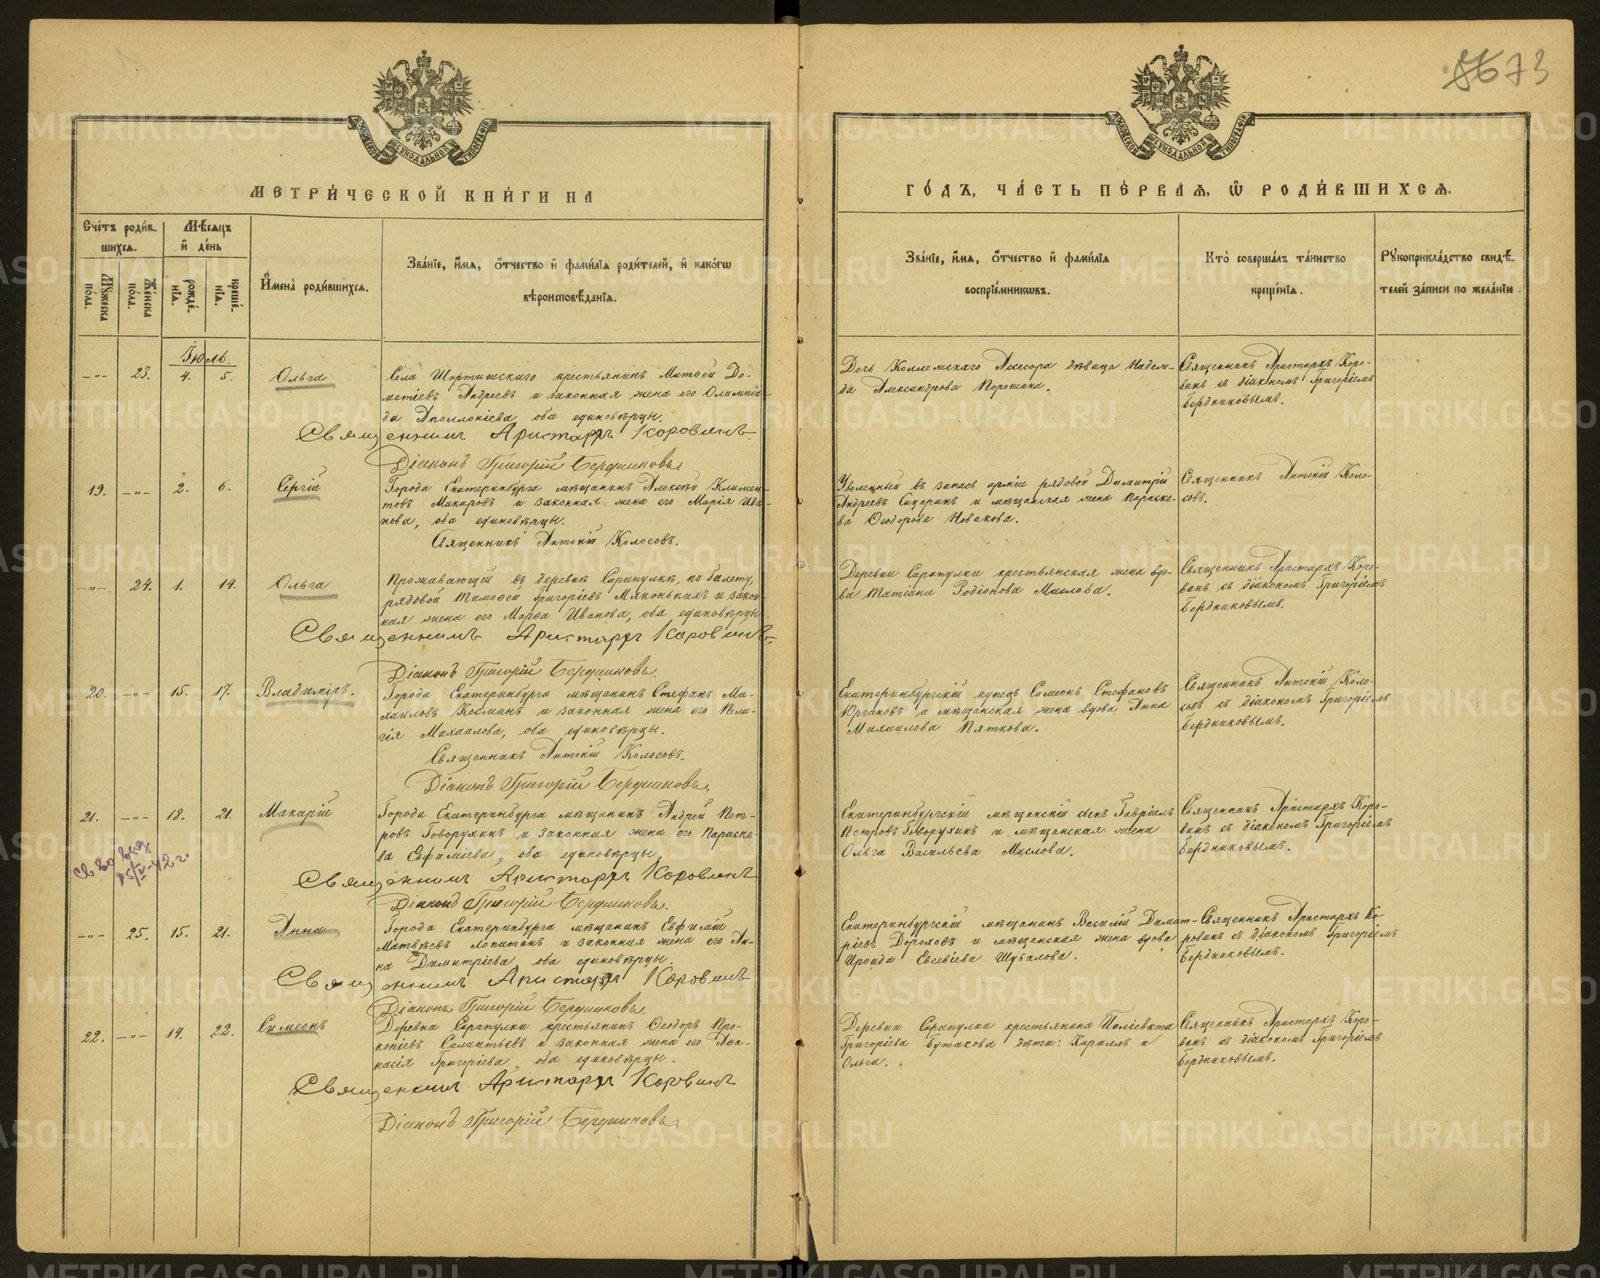 МЕТРИ́ЧЕСКОЙ КНИ́ГИ НА
Сче́тъ роди́в
шихсѧ.
Мꙋ́жеска по́ла.
Же́нска по́ла.
Мѣ́сѧцъ и҆ де́нь
рожде́нїѧ.
креще́нїѧ.
И҆мена̀ роди́вшихсѧ.
Зва́нїе, и҆́мѧ, ѻ҆́тчество и҆ фами́лїѧ роди́телей, и҆ како́гѡ
вѣроисповѣ́данїѧ.
Іюль
-"- 23. 4. 5. Ольга
Села Шорташскаго крестьянинъ Матѳей До-
метіевъ Андреевъ и законная жена его Олимпіа-
да Аполлоніева, оба единовѣрцы.
Священникъ Аристархъ Коровинъ
Діаконъ Григорій Бердниковъ
19. -"- 2. 6. Сергій
Города Екатеринбурга мѣщанинъ Алексѣй Климен-
товъ Макаровъ и законная жена его Марія Ива-
нова, оба единовѣрцы.
Священникъ Антоній Колосовъ.
-"- 24. 1. 14. Ольга
Проживающій въ деревнѣ Сарапулкѣ, по билету,
рядовой Тимоѳей Григоріевъ Мяконькихъ и закон-
ная жена его Марѳа Иванова, оба единовѣрцы
Священникъ Аристархъ Коровинъ
Діаконъ Григорій Бердниковъ
20. -"- 15. 17. Владиміръ.
Города Екатеринбурга мѣщанинъ Стефанъ Ми-
хаиловъ Косминъ и законная жена его Пела-
гія Михаилова, оба единовѣрцы.
Священникъ Антоній Колосовъ.
Діаконъ Григорій Бердниковъ
21. -"- 18. 21. Макарій
Города Екатеринбурга мѣщанинъ Андрей Пет-
ровъ Говорухинъ и законная жена его Параске-
ва Евѳиміева, оба единовѣрцы.
Священникъ Аристархъ Коровинъ
Діаконъ Григорій Бердниковъ
-"- 25. 15. 21. Анна
Города Екатеринбурга мѣщанинъ Евѳимій
Матвѣевъ Лопатинъ и законная жена его Ан-
на Димитріева, оба единовѣрцы.
Священникъ Аристархъ Коровинъ
Діаконъ Григорій Бердниковъ
22. -"- 14. 22. Симеонъ
Деревни Сарапулки крестьянинъ Ѳеодоръ Про-
копіевъ Силантьевъ и законная жена его Аѳа-
насія Григоріева, оба единовѣрцы.
Священникъ Аристархъ Коровинъ
Діаконъ Григорій Бердниковъ
73
ГО́ДЪ, ЧА́СТЬ ПЕ́РВАѦ, Ѡ҆ РОДИ́ВШИХСѦ.
Зва́нїе, и҆́мѧ, ѻ҆́тчество и҆ фами́лїѧ
воспрїе́мникѡвъ.
Кто̀ соверша́лъ та́инство
креще́нїѧ.
Рꙋкоприкла́дство свидѣ́-
телей за́писи по жела́нїю.
Дочь Коллежскаго Ассесора дѣвица Надеж-
да Александрова Порошина.
Священникъ Аристархъ Коро-
винъ съ діакономъ Григоріемъ
Бердниковымъ.
Уволенный въ запасъ арміи рядовой Димитрій
Андреевъ и мѣщанская жена Параске-
ва Ѳеодорова Новикова.
Священникъ Антоній Коло-
совъ.
Деревни Сарапулки крестьянская жена вдо-
ва Татіана Родіонова Маслова.
Священникъ Аристархъ Коро-
винъ съ діакономъ Григоріемъ
Бердниковымъ.
Екатеринбургскій купецъ Симеонъ Стефановъ
Юргановъ и мѣщанская жена вдова Анна
Михаилова Пяткова.
Священникъ Антоній Коло-
совъ съ діакономъ Григоріемъ
Бердниковымъ.
Екатеринбургскій мѣщанскій сынъ Гавріилъ
Петровъ Говорухинъ и мѣщанская жена
Ольга Васильева Маслова.
Священникъ Аристархъ Коро-
винъ съ діакономъ Григоріемъ
Бердниковымъ.
Екатеринбургскій мѣщанинъ Василій Димит-
ріевъ Дороховъ и мѣщанская жена вдова
Ираида Евсевіева Шувалова.
Священникъ Аристархъ Ко-
ровинъ съ діакономъ Григоріемъ
Бердниковымъ.
Деревни Сарапулки крестьянина Поліевкта
Григоріева Бутакова дѣти: Кириллъ и
Ольга.
Священникъ Аристархъ Коро-
винъ съ діакономъ Григоріемъ
Бердниковымъ.
METRIKI.GASO-URAL.RU